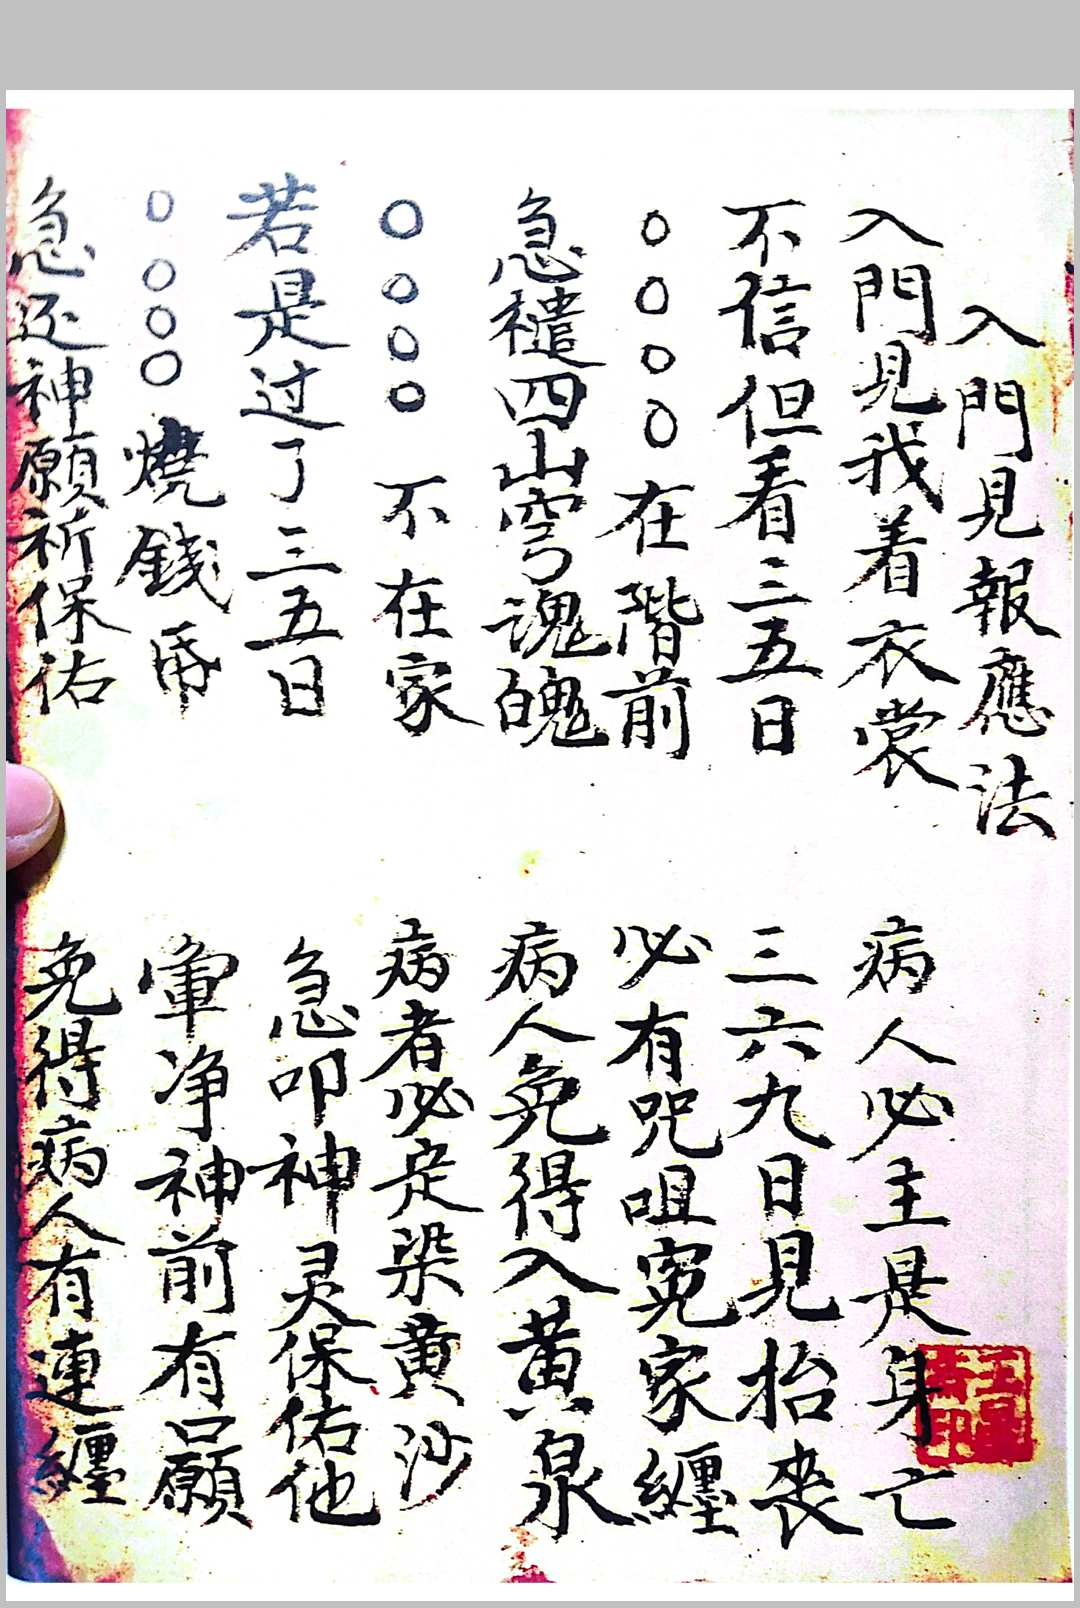 入門見報應法
入門見我着衣裳
病人必主是身亡
不信但看三五日
三六九日見抬丧
〇〇〇〇在階前
必有咒咀冤家纏
急禳四山穹魂魄
病人免得入黄泉
〇〇〇〇不在家
病者必定染黄沙
若是过了三五日
急叩神灵保佑他
〇〇〇〇燒錢帋
净神前有口願
急还神願祈保佑
免得病人有連纏